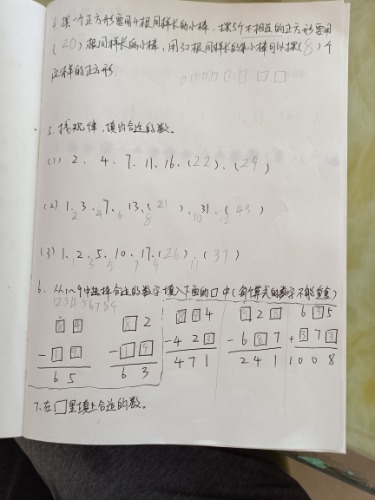 4. 摆一个正方形要用4根同样长的小棒，摆5个不相连的正方形要用
(20)根同样长的小棒，用32根同样长的小棒可以摆(8)个
这样的正方形.
5. 找规律，填出合适的数。
(1) 2、4、7、11、16、(22)、(29)
(2) 1、3、7、13、(21)、31、(43)
(3) 1、2、5、10、17、(26)、(37)
6. 从1~9中选择合适的数字填入下面的□中(每个算式的数字不能重复)
1 2 3 4 5 6 7 8 9
□4 □2 □□4 □2□ 6□5
-□□ -□9 -42□ -6□7 +□7□
65 63 471 241 1008
7. 在□里填上合适的数。